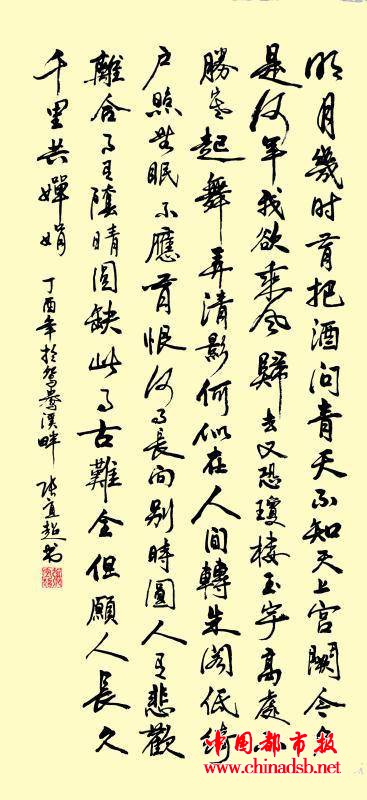 明月幾时有把酒问青天不知天上宫闕今夕
是何年我欲乘风歸去又恐瓊楼玉宇高處不
勝寒起舞弄清影何似在人间轉朱阁低绮
户照無眠不應有恨何事長向别時圓人有悲歡
離合月有陰晴圆缺此事古難全但願人長久
千里共嬋娟
丁酉年於鸳鸯溪畔 张宜超书
中国都市报
www.chinadsb.net